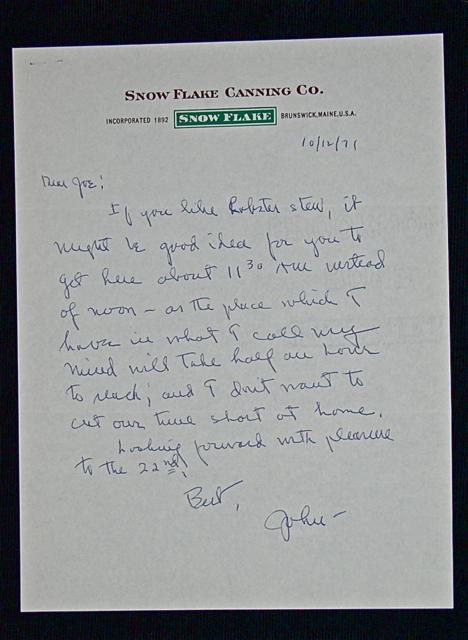 SNOW FLAKE CANNING CO.
INCORPORATED 1892 SNOW FLAKE BRUNSWICK, MAINE, U.S.A.
10/12/71
Dear Joe:
If you like lobster stew, it
might be good idea for you to
get here about 11 30 AM instead
of noon – as the place which I
have in what I call my
mind will take half an hour
to reach; and I don't want to
cut our time short at home.
Looking forward with pleasure
to the 22nd!
Best,
John –